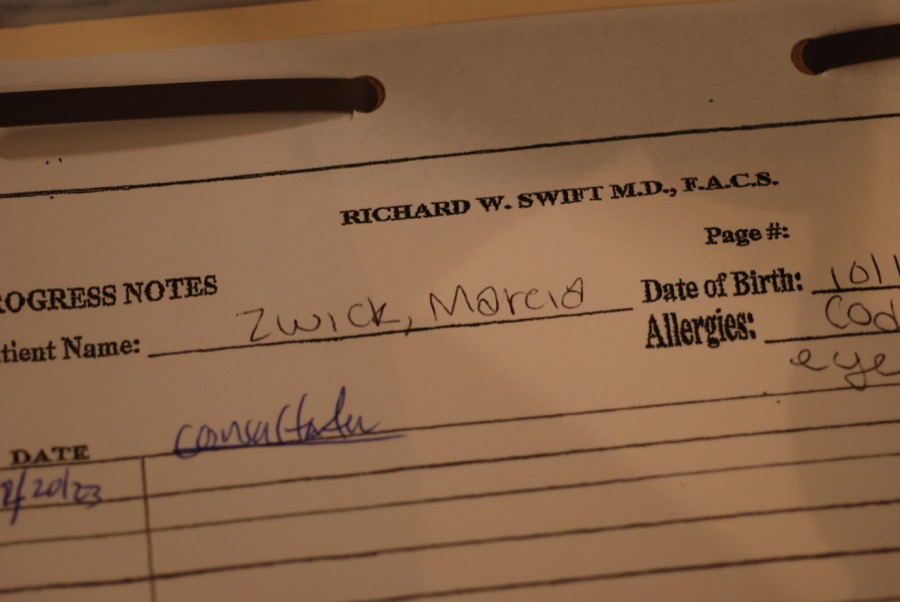 RICHARD W. SWIFT M.D., F.A.C.S.
Page #:
ROGRESS NOTES
Date of Birth: 10/1
tient Name: Zwick, Marcia
Allergies: Cod
eye
consultation
DATE
/20/23